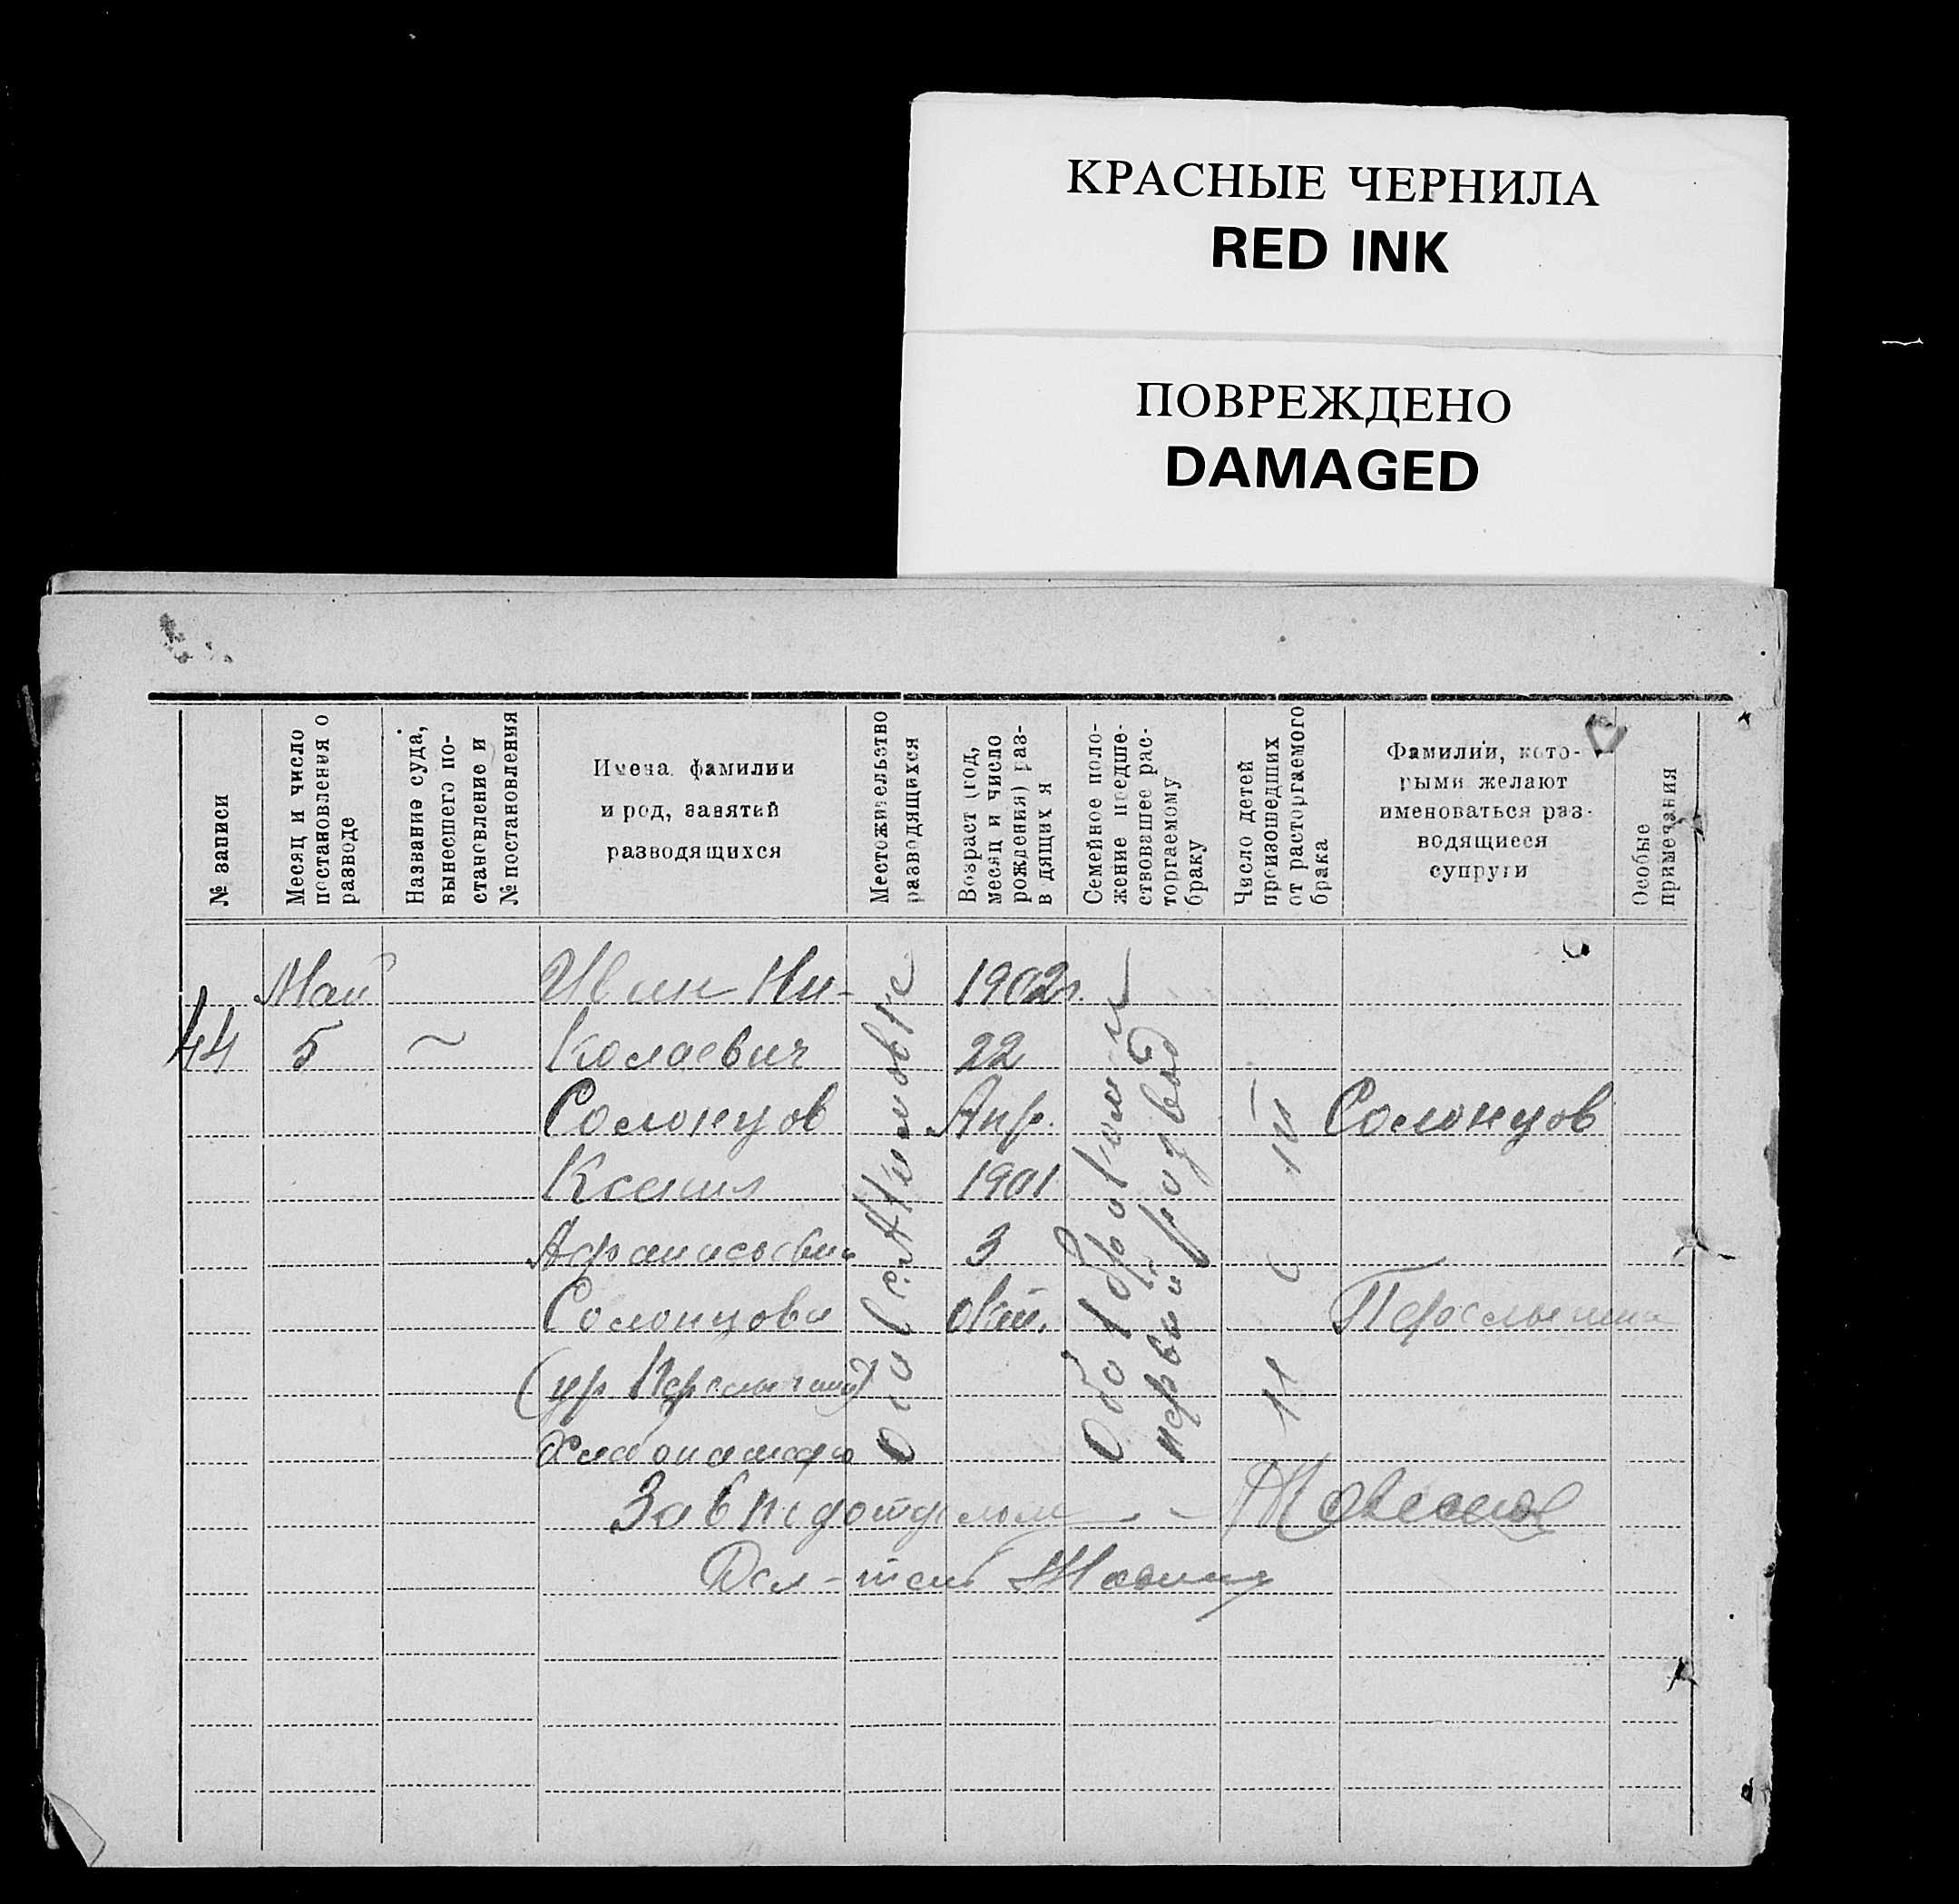 КРАСНЫЕ ЧЕРНИЛА
RED INK
ПОВРЕЖДЕНО
DAMAGED
№ записи
Месяц и число
постановления о
разводе
Название суда,
вынесшего по-
становление и
№ постановления
Имена, фамилии
и род, занятий
разводящихся
Местожительство
разводящихся
Возраст (год,
месяц и число
рождения) раз-
в дящих я
Семейное поло-
жение предше-
ствовавшее рас-
торгаемому
браку
Число детей
происшедших
от расторгаемого
брака
Фамилии, кото-
рыми желают
именоваться раз-
водящиеся
супруги
Особые
примечания
44
Май
5
Иван Ни-
колаевич
Солонцов
Ксения
Афанасьевна
Солонцова
(ур
1902г.
22
Апр.
1901
3
Оба
первый развод
Солонцов
Зав
Дел-тель